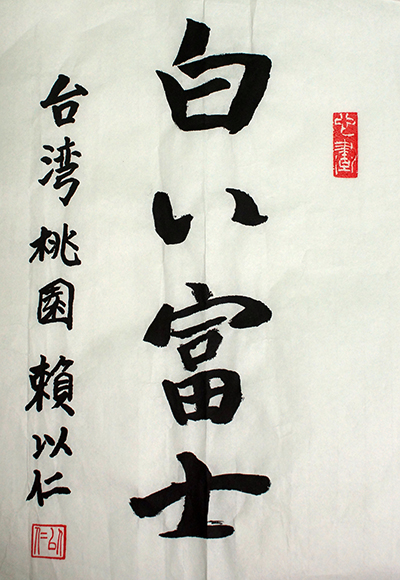 白い富士
台湾桃園 賴以仁